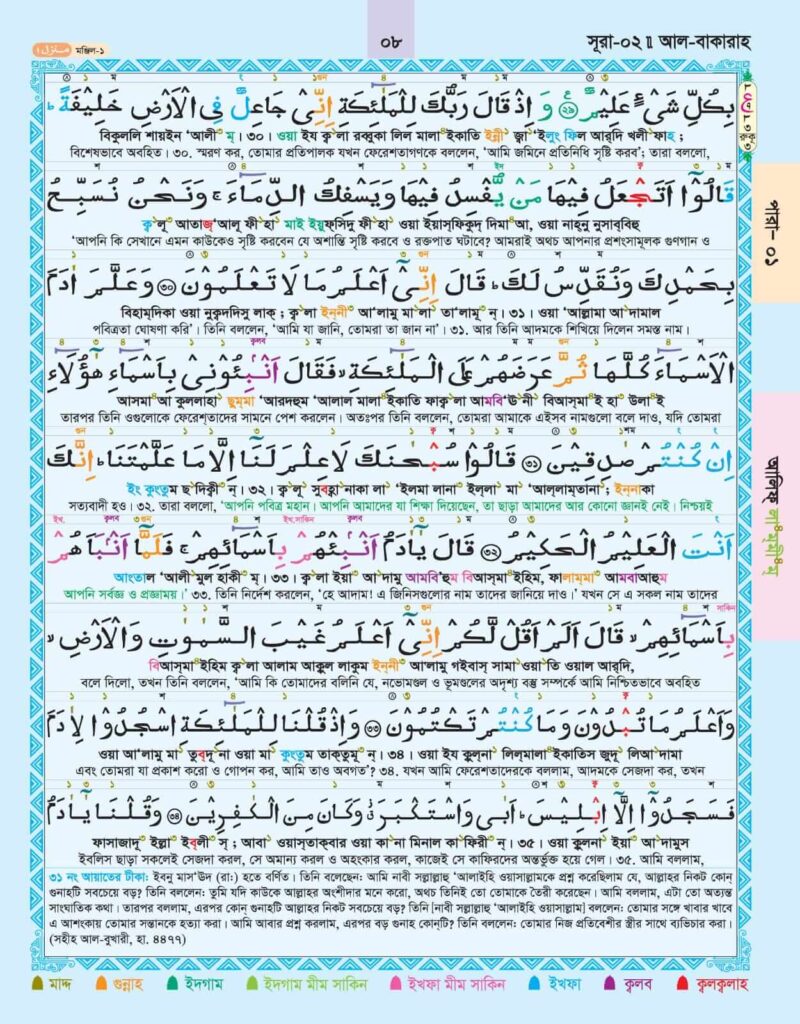 সূরা-০২ ॥ আল-বাকারাহ
০৮
মঞ্জিল-১ منزل ١
পারা- ০১
আলিফ্ লা^৪ম্ মী^৪ম্
بِكُلِّ شَىْءٍ عَلِيْمٌ ۝٢٩ وَ اِذْ قَالَ رَبُّكَ لِلْمَلٰٓئِكَةِ اِنِّىْ جَاعِلٌ فِى الْاَرْضِ خَلِيْفَةً ؕ
বিকুললি শায়ইন ‘আলী^৩ ম্। ৩০। ওয়া ইয ক্ব^১লা রব্বুকা লিল মালা^৪ইকাতি ইন্নী^৩ জ্বা^১ ‘ইলুং ফিল আর্‌দি খলী^১ফাহ ;
বিশেষভাবে অবহিত। ৩০. স্মরণ কর, তোমার প্রতিপালক যখন ফেরেশতাগণকে বললেন, ‘আমি জমিনে প্রতিনিধি সৃষ্টি করব’; তারা বললো,
قَالُوْٓا اَتَجْعَلُ فِيْهَا مَنْ يُّفْسِدُ فِيْهَا وَيَسْفِكُ الدِّمَآءَ ۚ وَنَحْنُ نُسَبِّحُ
ক্ব^১লূ^৩ আতাজ্‌‘আলু ফী^১হা^১ মাই ইয়ুফ্‌সিদু ফী^১হা^১ ওয়া ইয়াস্‌ফিকুদ্ দিমা^৪আ, ওয়া নাহ্‌নু নুসাব্বিহু
‘আপনি কি সেখানে এমন কাউকেও সৃষ্টি করবেন যে অশান্তি সৃষ্টি করবে ও রক্তপাত ঘটাবে? আমরাই অথচ আপনার প্রশংসামূলক গুণগান ও
بِحَمْدِكَ وَنُقَدِّسُ لَكَ ؕ قَالَ اِنِّىْٓ اَعْلَمُ مَا لَا تَعْلَمُوْنَ ۝٣٠ وَعَلَّمَ اٰدَمَ
বিহাম্‌দিকা ওয়া নুক্বদদিসু লাক্ ; ক্ব^১লা ইন্‌নী^৩ আ‘লামু মা^১লা^১ তা‘লামূ^৩ ন্। ৩১। ওয়া ‘আল্লামা আ^১দামাল
পবিত্রতা ঘোষণা করি’। তিনি বললেন, ‘আমি যা জানি, তোমরা তা জান না’। ৩১. আর তিনি আদমকে শিখিয়ে দিলেন সমস্ত নাম।
الْاَسْمَآءَ كُلَّهَا ثُمَّ عَرَضَهُمْ عَلَى الْمَلٰٓئِكَةِ ۙ فَقَالَ اَنْۢبِـُٔوْنِىْ بِاَسْمَآءِ هٰٓؤُلَآءِ
আসমা^৪আ কুললাহা^১ ছুম্‌মা ‘আরদহুম ‘আলাল মালা^৪ইকাতি ফাক্ব^১লা আমবি^১উ^১নী^১ বিআস্‌মা^৪ই হা^৪ উলা^৪ই
তারপর তিনি ওগুলোকে ফেরেশ্‌তাদের সামনে পেশ করলেন। অতঃপর তিনি বললেন, তোমরা আমাকে এইসব নামগুলো বলে দাও, যদি তোমরা
اِنْ كُنْتُمْ صٰدِقِيْنَ ۝٣١ قَالُوْا سُبْحٰنَكَ لَا عِلْمَ لَنَآ اِلَّا مَا عَلَّمْتَنَا ؕ اِنَّكَ
ইং কুংতুম ছ^১দিক্বী^৩ ন্। ৩২। ক্ব^১লূ^১ সুবহা^১নাকা লা^১ ‘ইলমা লানা^৩ ইল্‌লা^১ মা^১ ‘আল্‌লাম্‌তানা^১; ইন্‌নাকা
সত্যবাদী হও। ৩২. তারা বললো, ‘আপনি পবিত্র মহান। আপনি আমাদের যা শিক্ষা দিয়েছেন, তা ছাড়া আমাদের আর কোনো জ্ঞানই নেই। নিশ্চয়ই
اَنْتَ الْعَلِيْمُ الْحَكِيْمُ ۝٣٢ قَالَ يٰٓاٰدَمُ اَنْۢبِئْهُمْ بِاَسْمَآئِهِمْ ۚ فَلَمَّآ اَنْۢبَاَهُمْ
আংতাল ‘আলী^১মুল হাকী^৩ ম্। ৩৩। ক্ব^১লা ইয়া^৩ আ^১দামু আমবি’হুম বিআস্‌মা^৪ইহিম, ফালাম্‌মা^৩ আমবাআহুম
আপনি সর্বজ্ঞ ও প্রজ্ঞাময়।’ ৩৩. তিনি নির্দেশ করলেন, ‘হে আদাম! এ জিনিসগুলোর নাম তাদের জানিয়ে দাও।’ যখন সে এ সকল নাম তাদের
بِاَسْمَآئِهِمْ ۙ قَالَ اَلَمْ اَقُلْ لَّكُمْ اِنِّىْٓ اَعْلَمُ غَيْبَ السَّمٰوٰتِ وَالْاَرْضِ ۙ
বিআস্‌মা^৪ইহিম ক্ব^১লা আলাম আকুল লাকুম ইন্‌নী^৩ আ‘লামু গইবাস্ সামা^১ওয়া^১তি ওয়াল আরদি,
বলে দিলো, তখন তিনি বললেন, ‘আমি কি তোমাদের বলিনি যে, নভোমণ্ডল ও ভূমণ্ডলের অদৃশ্য বস্তু সম্পর্কে আমি নিশ্চিতভাবে অবহিত
وَاَعْلَمُ مَا تُبْدُوْنَ وَمَا كُنْتُمْ تَكْتُمُوْنَ ۝٣٣ وَاِذْ قُلْنَا لِلْمَلٰٓئِكَةِ اسْجُدُوْا لِاٰدَمَ
ওয়া আ‘লামু মা^১ তুব্‌দূ^১না ওয়া মা^১ কুংতুম তাক্‌তুমূ^৩ ন্। ৩৪। ওয়া ইয কুল্‌না^১ লিল্‌মালা^৪ইকাতিস জুদূ^১ লিআ^১দামা
এবং তোমরা যা প্রকাশ করো ও গোপন কর, আমি তাও অবগত’? ৩৪. যখন আমি ফেরেশতাদেরকে বললাম, আদমকে সেজদা কর, তখন
فَسَجَدُوْٓا اِلَّآ اِبْلِيْسَ ؕ اَبٰى وَاسْتَكْبَرَ ٭ۗ وَكَانَ مِنَ الْكٰفِرِيْنَ ۝٣٤ وَقُلْنَا يٰٓاٰدَمُ
ফাসাজাদূ^৩ ইল্লা^৩ ইব্‌লী^৩ স্ ; আবা^১ ওয়াস্‌তাক্‌বার ওয়া কা^১না মিনাল কা^১ফিরী^৩ ন্। ৩৫। ওয়া কুলনা^১ ইয়া^৩ আ^১দামুস
ইবলিস ছাড়া সকলেই সেজদা করল, সে অমান্য করল ও অহংকার করল, কাজেই সে কাফিরদের অন্তর্ভুক্ত হয়ে গেল। ৩৫. আমি বললাম,
৩১ নং আয়াতের টীকা: ইবনু মাস‘ঊদ (রা:) হতে বর্ণিত। তিনি বলেছেন: আমি নাবী সল্লাল্লাহু ‘আলাইহি ওয়াসাল্লামকে প্রশ্ন করেছিলাম যে, আল্লাহর নিকট কোন্
গুনাহটি সবচেয়ে বড়? তিনি বললেন: তুমি যদি কাউকে আল্লাহর অংশীদার মনে করো, অথচ তিনিই তো তোমাকে তৈরী করেছেন। আমি বললাম, এটা তো অত্যন্ত
সাংঘাতিক কথা। তারপর বললাম, এরপর কোন্ গুনাহটি আল্লাহর নিকট সবচেয়ে বড়? তিনি [নাবী সল্লাল্লাহু ‘আলাইহি ওয়াসাল্লাম] বললেন: তোমার সঙ্গে খাবার খাবে
এ আশংকায় তোমার সন্তানকে হত্যা করা। আমি আবার প্রশ্ন করলাম, এরপর বড় গুনাহ কোন্‌টি? তিনি বললেন: তোমার নিজ প্রতিবেশীর স্ত্রীর সাথে ব্যভিচার করা।
(সহীহ আল-বুখারী, হা. ৪৪৭৭)
মাদ্দ গুন্নাহ ইদগাম ইদগাম মীম সাকিন ইখফা মীম সাকিন ইখফা ক্বলব ক্বলক্বলাহ